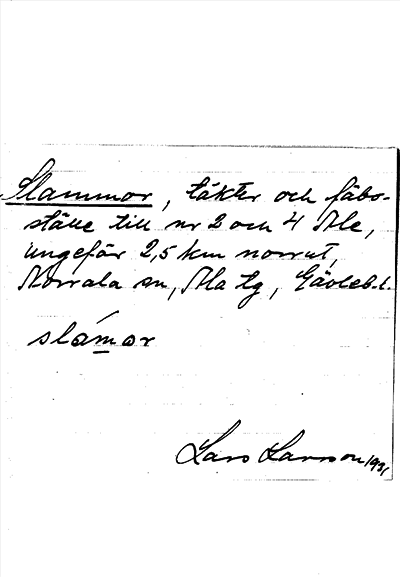 Slammor, täkter och fäbo-
ställe till nr 2 och 4 Ale,
ungefär 2,5 km norrut,
Norrala sn, Ala tg, Gävleb.l.
slámar
Lars Larsson 1931